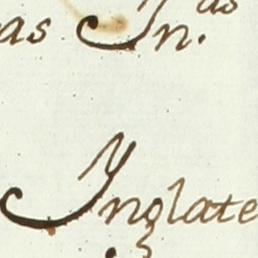 as Jn.as
Inglate